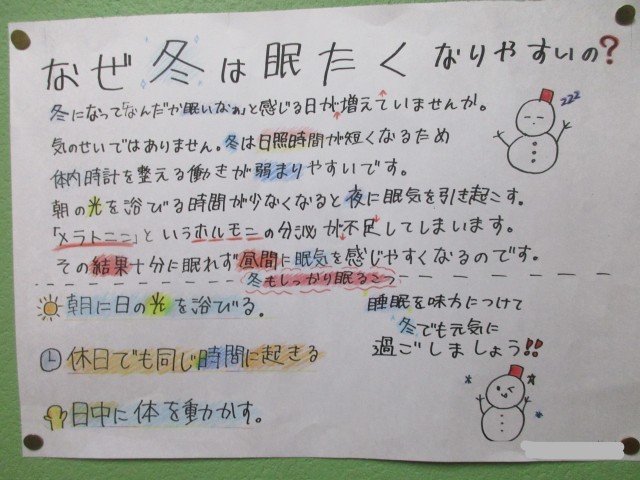 なぜ冬は眠たくなりやすいの?
冬になって「なんだか眠いなぁ」と感じる日が増えていませんか。
zzz
気のせいではありません。冬は日照時間が短くなるため
体内時計を整える働きが弱まりやすいです。
朝の光を浴びる時間が少なくなると夜に眠気を引き起こす。
「メラトニン」というホルモンの分泌が不足してしまいます。
その結果十分に眠れず昼間に眠気を感じやすくなるのです。
冬もしっかり眠るコツ
朝に日の光を浴びる。
休日でも同じ時間に起きる
日中に体を動かす。
睡眠を味方につけて
冬でも元気に
過ごしましょう!!